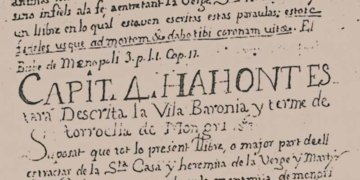 uno infiels ala fe acentrant la Verge, S.
un llibre en lo qual estaven escritas estas paraulas; estote
fideles usque ad mortem & dabo tibi coronam vitæ. El
Bisbe de Mænopoli 3. p. l. 1. Cap. 17.
CAPÍT. 4. HAHONT ES
tarà Descrita la Vila Baronia y terme de
torroella de Mongrí
Suposat que tot lo present llibre, o major part dell
estractar de la Sta. Casa y heremita de la Verge y Martyr